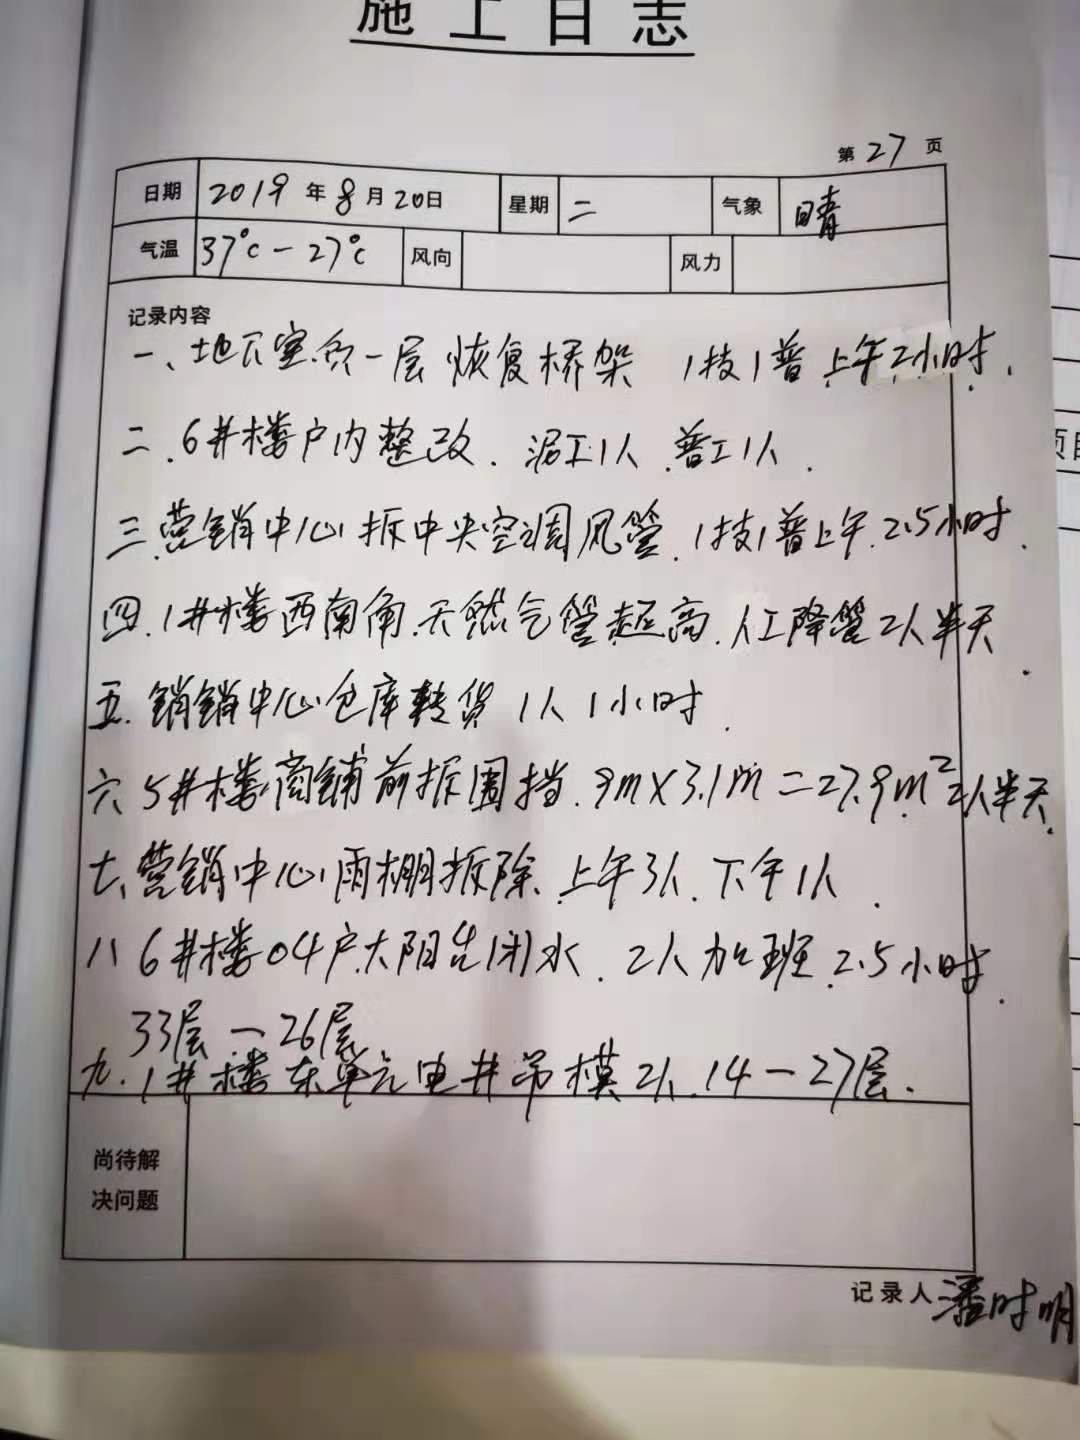 施工日志
第 27 页
日期 2019 年 8 月 20 日 星期 二 气象 晴
气温 37℃-27℃ 风向 风力
记录内容
一、地下室负一层恢复桥架 1技1普上午2小时.
二.6#楼户内整改.泥工1人.普工1人.
三.营销中心拆中央空调风管.1技1普上午.2.5小时.
四.1#楼西南角.天然气管超高.人工降管2人半天.
五.销销中心仓库转货1人1小时.
六.5#楼商铺前拆围挡.9m×3.1m=27.9m²2人半天.
七、营销中心雨棚拆除.上午3人.下午1人.
八6#楼04户大阳台闭水.2人加班.2.5小时.
33层-26层
九.1#楼东单元电井吊模2人.14-27层.
尚待解
决问题
记录人 潘时明
项目